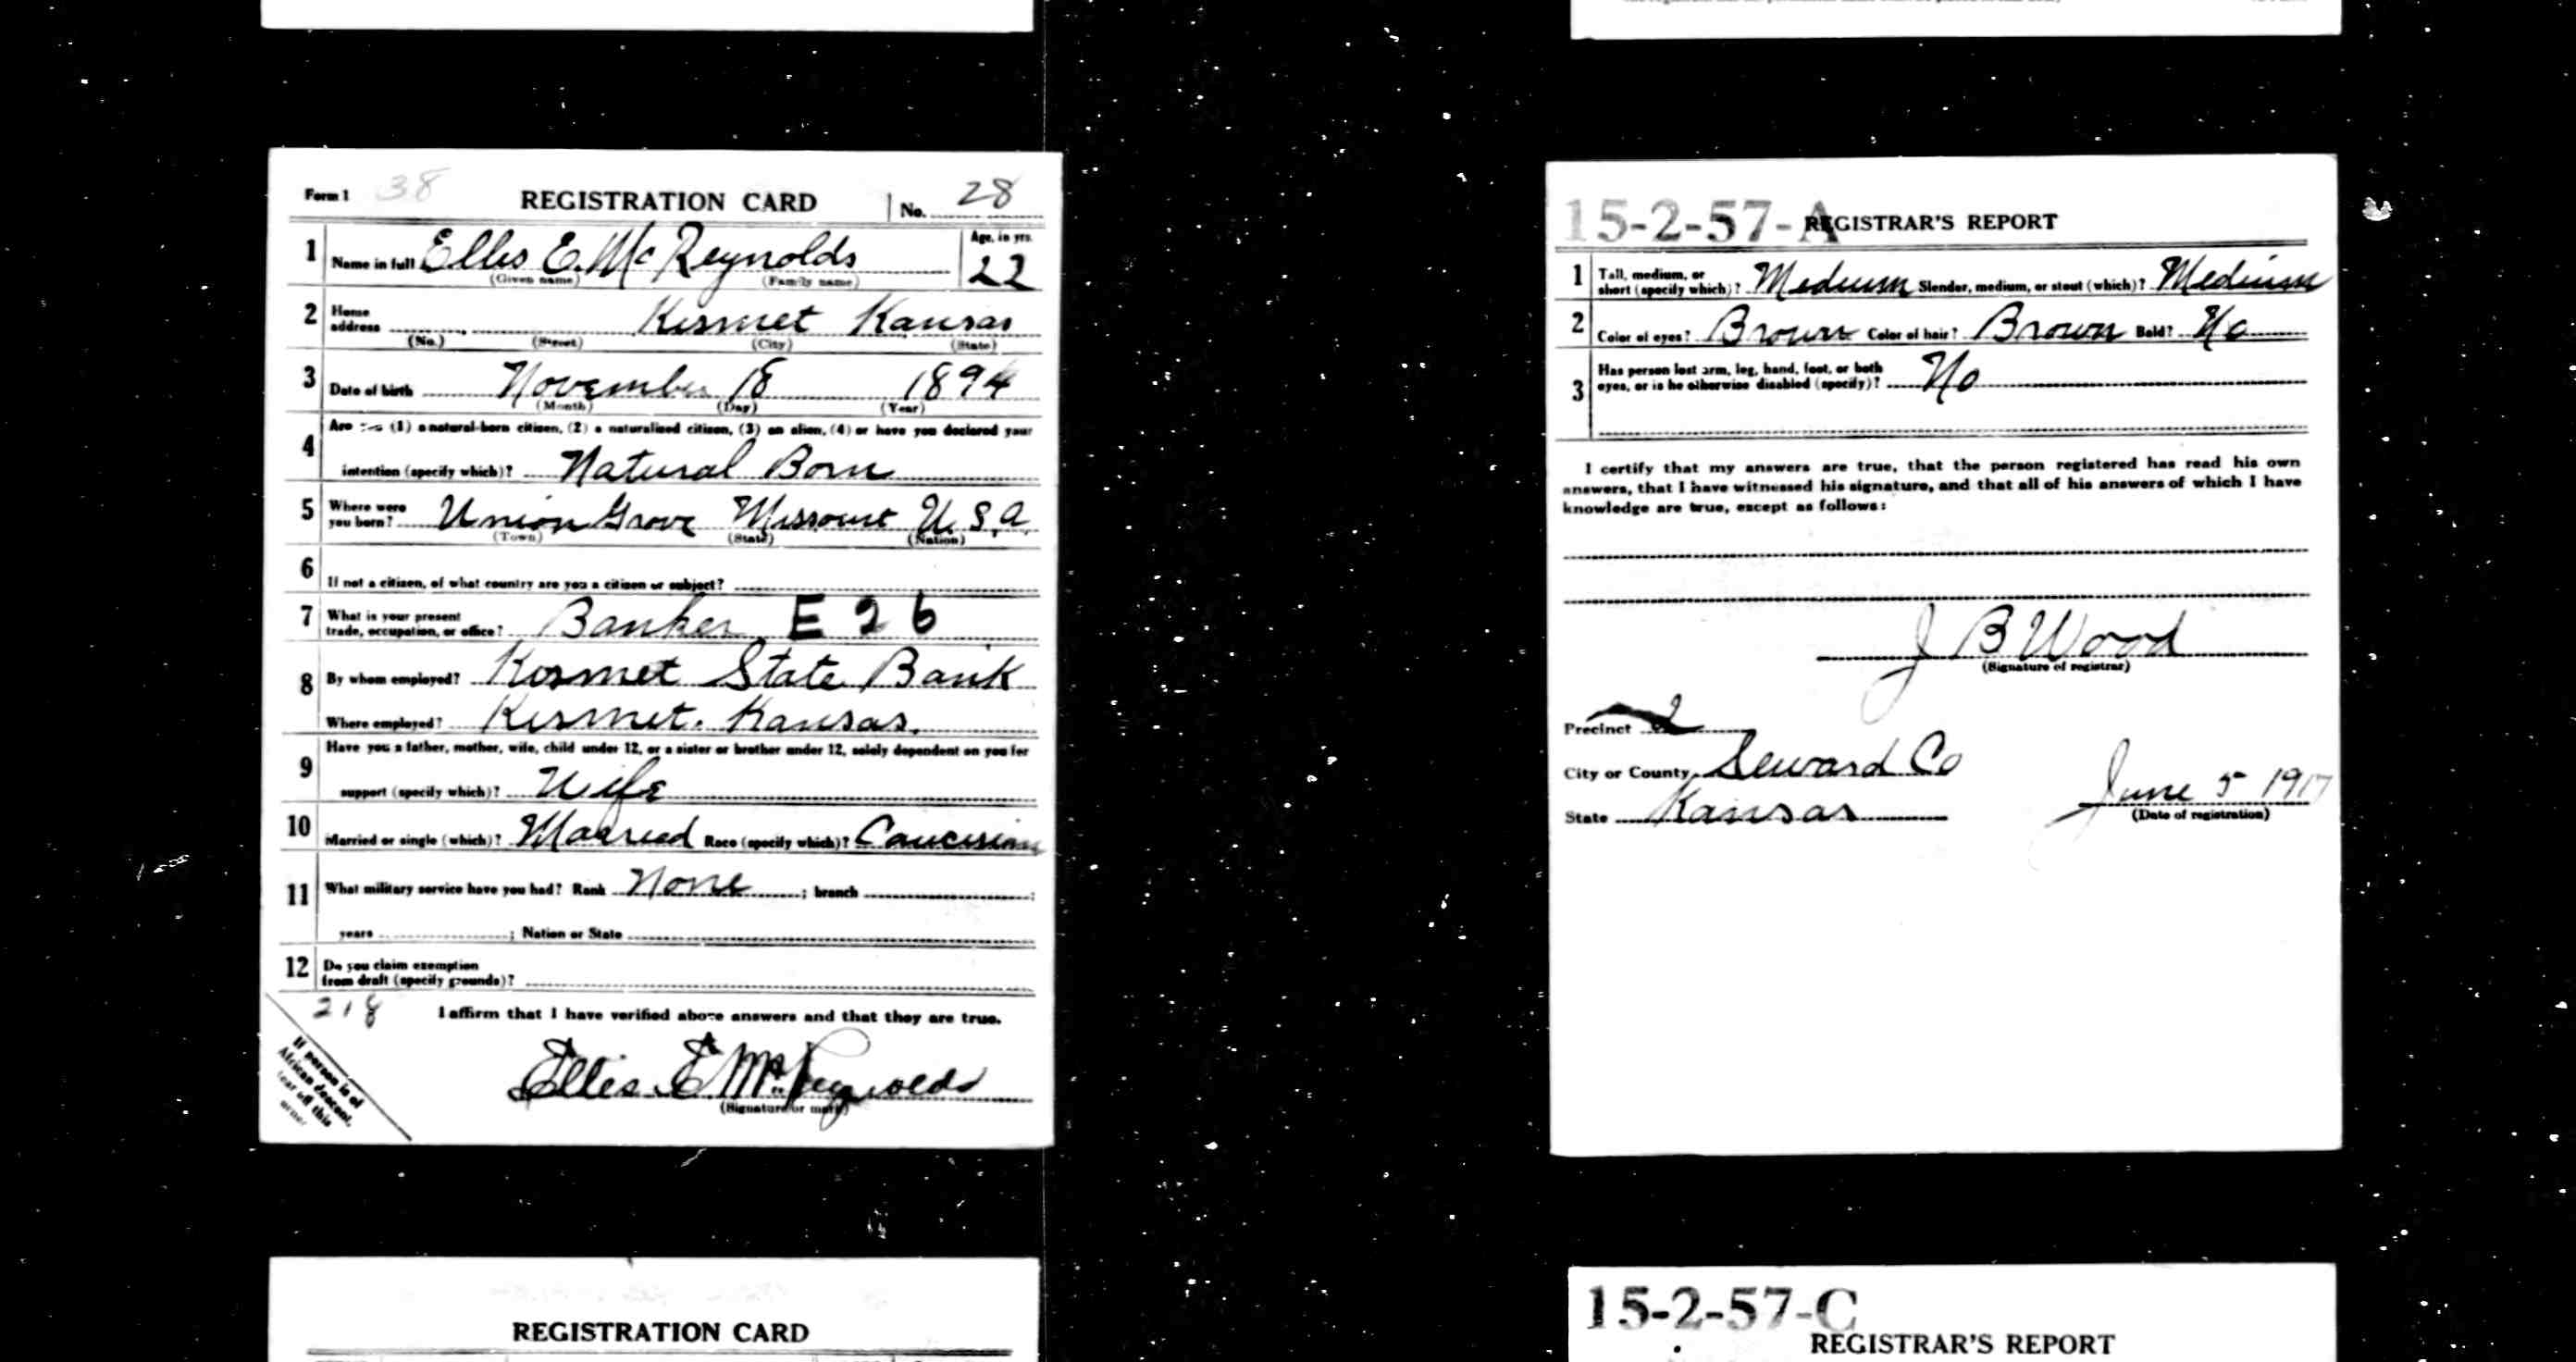 Form 1 38 REGISTRATION CARD No. 28
1 Name in full Ellis E. McReynolds Age, in yrs. 22
(Given name) (Family name)
2 Home address Kismet Kansas
(No.) (Street) (City) (State)
3 Date of birth November 18 1894
(Month) (Day) (Year)
4 Are (1) a natural-born citizen, (2) a naturalized citizen, (3) an alien, (4) or have you declared your
intention (specify which)? Natural Born
5 Where were you born? Union Grove Missouri U.S.A.
(Town) (State) (Nation)
6 If not a citizen, of what country are you a citizen or subject?
7 What is your present trade, occupation, or office? Banker E 26
8 By whom employed? Kismet State Bank
Where employed? Kismet. Kansas.
9 Have you a father, mother, wife, child under 12, or a sister or brother under 12, solely dependent on you for
support (specify which)? Wife
10 Married or single (which)? Married Race (specify which)? Caucisian
11 What military service have you had? Rank None ; branch ;
years ; Nation or State
12 Do you claim exemption from draft (specify grounds)?
218 I affirm that I have verified above answers and that they are true.
If person is of
African descent,
tear off this
corner
Ellis E McReynolds
(Signature or mark)
REGISTRATION CARD
15-2-57-A REGISTRAR'S REPORT
1 Tall, medium, or short (specify which)? Medium Slender, medium, or stout (which)? Medium
2 Color of eyes? Brown Color of hair? Brown Bald? No
3 Has person lost arm, leg, hand, foot, or both
eyes, or is he otherwise disabled (specify)? No
I certify that my answers are true, that the person registered has read his own
answers, that I have witnessed his signature, and that all of his answers of which I have
knowledge are true, except as follows:
J B Wood
(Signature of registrar)
Precinct 2
City or County Seward Co
State Kansas June 5 1917
(Date of registration)
15-2-57-C
REGISTRAR'S REPORT